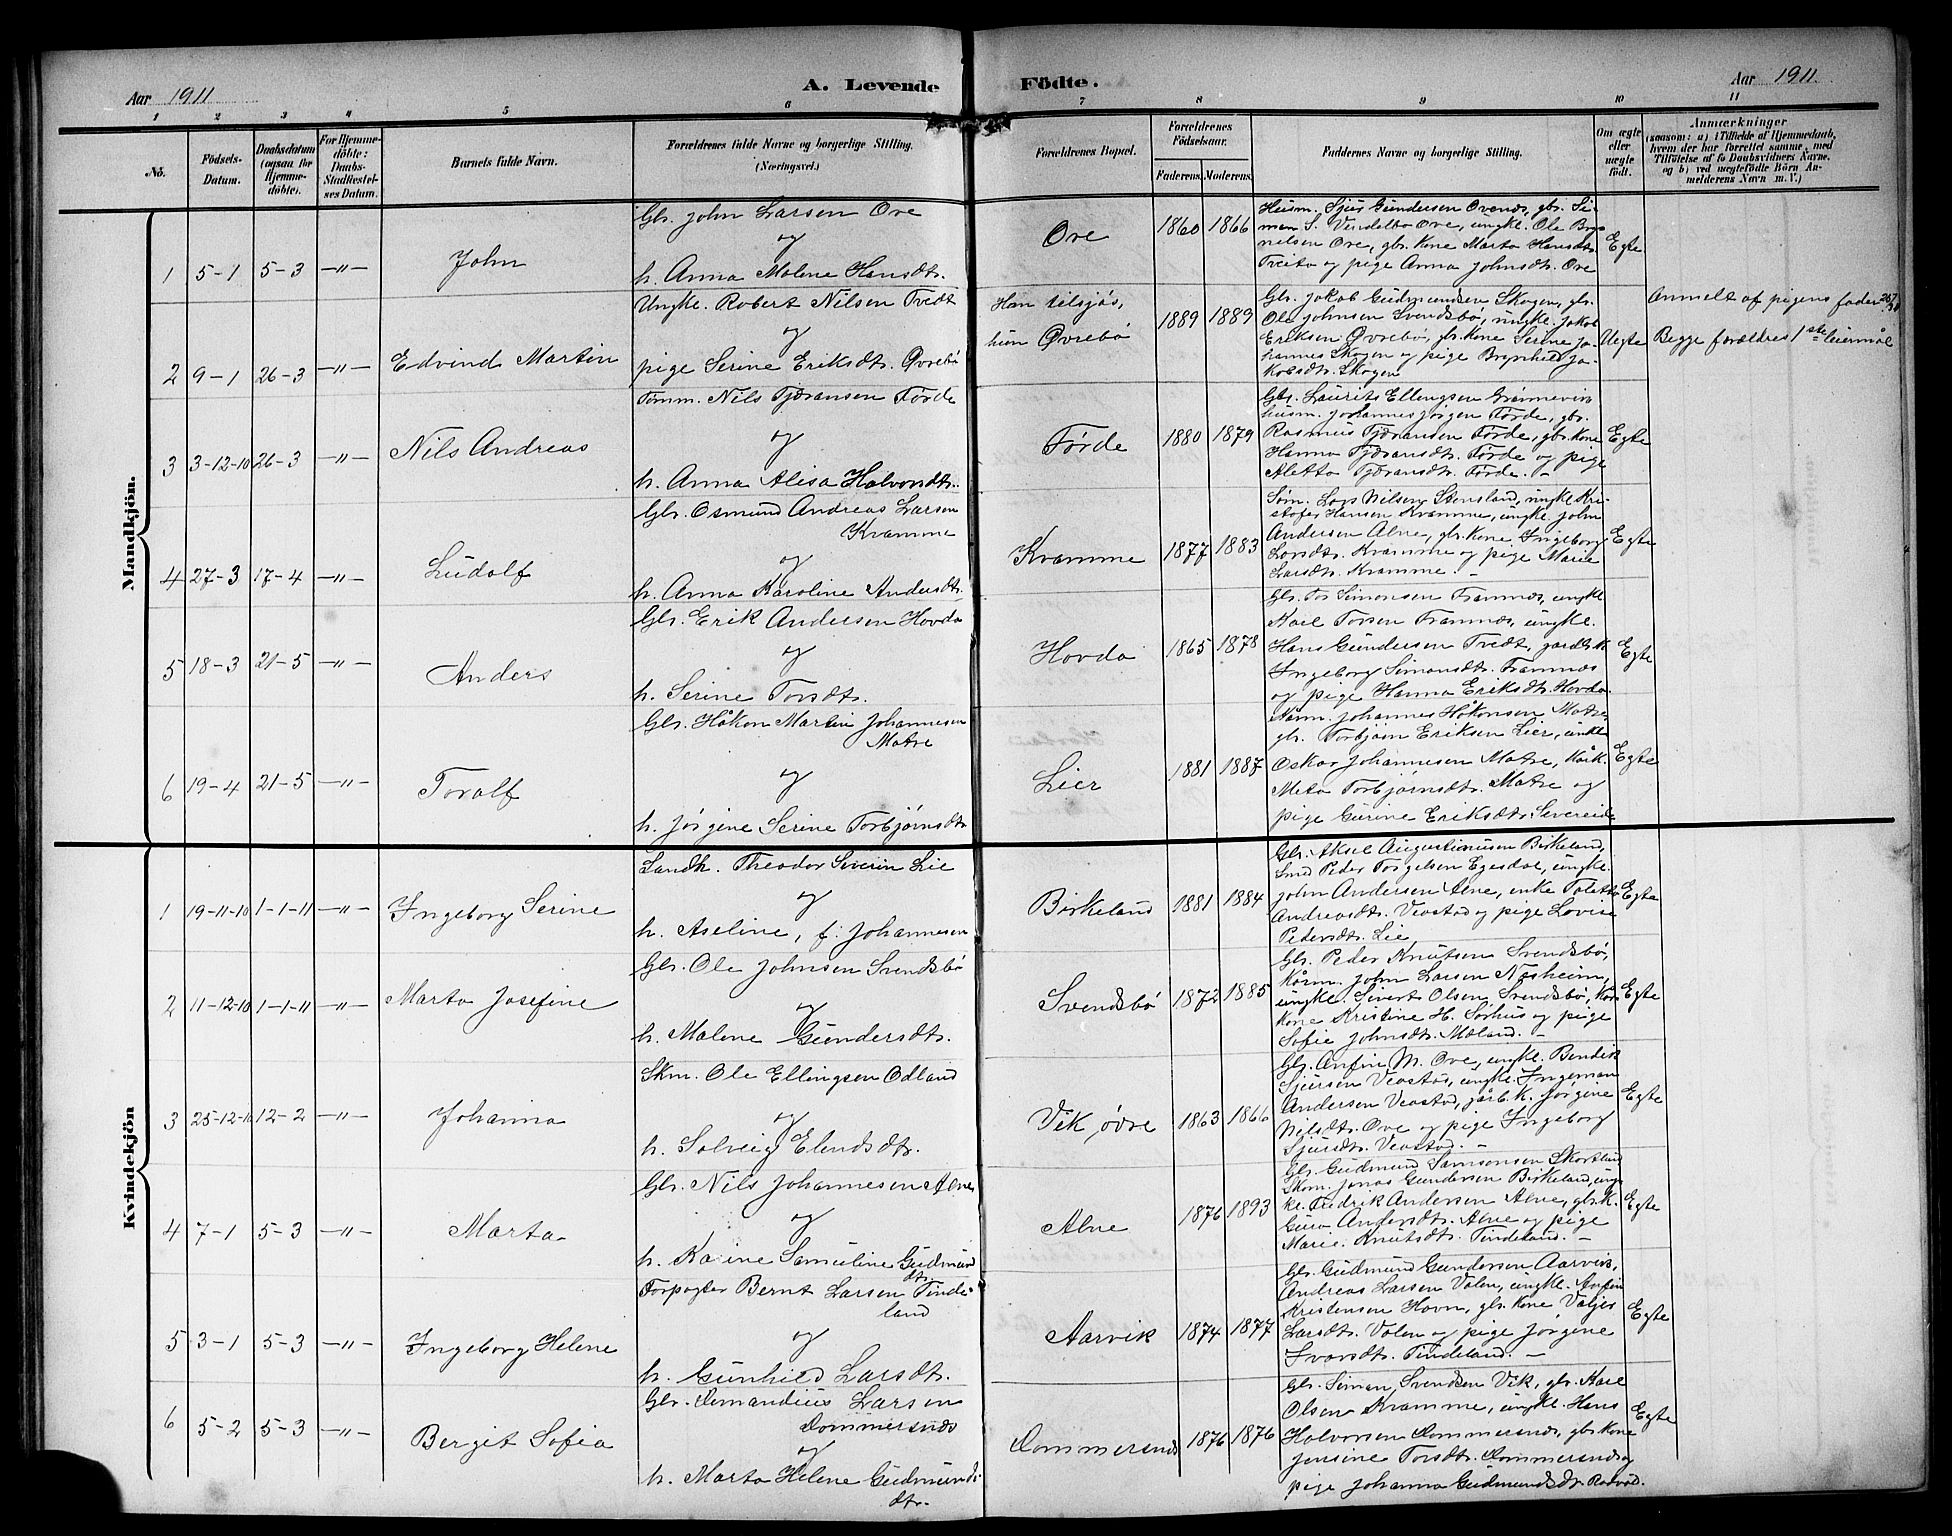 Aar 1911
A. Levende Födte.
Aar 1911.
1 2 3 4 5 6 7 8 9 10 11
No.
Födsels-Datum.
Daabsdatum (ogsaa for Hjemme-döbte).
For Hjemme-döbte: Daabs-Stadfæstel-ses Datum.
Barnets fulde Navn.
Forældrenes fulde Navne og borgerlige Stilling. (Næringsvei.)
Forældrenes Bopæl.
Forældrenes Födselsaar.
Faderens. Moderens.
Faddernes Navne og borgerlige Stilling.
Om ægte eller uægte födt.
Anmærkninger
(saasom: a) i Tilfælde af Hjemmedaab,
hvem der har forrettet samme, med
Tilföielse af to Daabsvidners Navne,
og b) ved uægtefödte Börn An-
melderens Navn m. V.)
Mandkjön.
1 5-1 5-3 -"- John
Gbr. John Larsen Ove
og
h. Anna Malene Hansdtr.
Ove 1860 1866
Husm. Sjur Gundersen Ovenes, gbr. Si-
man S. Vendelbo Ove, ungk. Ole Bry-
nelsen Ove, gbr. kone Marta Hansdtr.
Tveita og pige Anna Johnsdtr. Ove
Egte
2 9-1 26-3 -"- Edvind Martin
Ungk. Robert Nilsen Tvedt
og
pige Serine Eriksdtr. Øvrebø
hun Øvrebø
1889 1889
Gbr. Jakob Gudmundsen Skogen, gbr.
Ole Johnsen Svendsbø, ungk. Jakob
Eriksen Øvrebø, gbr. kone Serine Jo-
hannes Skogen og pige Brynhild Ja-
kobsdtr. Skogen
Uegte
Anmelt af pigens fader
Begge forældres 1ste leiermål
3 3-12-10 26-3 -"- Nils Andreas
Tømm. Nils Tjøransen Førde
og
h. Anna Alisa Halvorsdtr.
Førde 1880 1879
Gbr. Laurits Ellingsen Grønnevik
husm. Johannes Jørgen Førde, gbr.
Rasmus Tjøransen Førde, gbr. kone
Hanna Tjøransdtr. Førde og pige
Aletta Tjøransdtr. Førde. -
Egte
4 27-3 17-4 -"- Ludolf
Gbr. Osmund Andreas Larsen
Kramme
og
h. Anna Karoline Andersdtr.
Kramme 1877 1883
Søm. Lars Nilsen Stensland, ungk. Kri-
stofer Hansen Kramme, ungk. John
Andersen Alne, gbr. kone Ingeborg
Larsdtr. Kramme og pige Marie
Larsdtr. Kramme. -
Egte
5 18-3 21-5 -"- Anders
Gbr. Erik Andersen Hovda
og
h. Serine Torsdtr.
Hovda 1865 1878
Gbr. Tor Simonsen Framnes, ungk.
Karl Torsen Framnes, ungk.
Hans Gundersen Tvedt, gardbr.k.
Ingeborg Simonsdtr. Framnes
og pige Hanna Eriksdtr. Hovda.
Egte
6 19-4 21-5 -"- Toralf
Gbr. Håkon Martin Johannesen
Matre
og
h. Jørgine Serine Torbjørnsdtr.
Lier 1881 1887
Johannes Håkonsen Matre,
gbr. Torbjørn Eriksen Lier, ungk.
Oskar Johannesen Matre,
Meta Torbjørnsdtr. Matre og
pige Gurine Eriksdtr. Severeide
Egte
Kvindekjön
1 19-11-10 1-1-11 -"- Ingeborg Serine
Landh. Theodor Severin Lie
og
h. Aseline, f. Johannesen
Birkeland 1881 1884
Gbr. Aksel Augustinusen Birkeland,
Smed Peder Torgelsen Egesdal, ungk.
John Andersen Alne, enke Toletta
Andreasdtr. Veastad og pige Lovise
Pedersdtr. Lie
Egte
2 11-12-10 1-1-11 -"- Marta Josefine
Gbr. Ole Johnsen Svendsbø
og
h. Malene Gundersdtr.
Svendsbø 1872 1885
Gbr. Peder Knutsen Svendsbø,
Kårm. John Larsen Nøsheim,
ungk. Sivert Olsen Svendsbø, Kår-
kone Kristine H. Sørhus og pige
Sofie Johnsdtr. Mæland. -
Egte
3 25-12-10 12-2 -"- Johanna
Skm. Ole Ellingsen Odland
og
h. Solveig Elendsdtr.
Vik, øvre 1863 1866
Gbr. Anfin M. Ove, ungk. Bendik
Sjursen Veastad, ungk. Ingeman
Andersen Veastad, gårb.k. Jørgine
Nilsdtr. Ove og pige Ingeborg
Sjursdtr. Veastad. -
Egte
4 7-1 5-3 -"- Marta
Gbr. Nils Johannesen Alne
og
h. Karine Samuline Gudmund
dtr.
Alne 1876 1893
Gbr. Gudmund Samsonsen Skortland
Skom. Jonas Gundersen Birkeland, ung-
k. Fredrik Andersen Alne, gbr.k.
Guro Andersdtr. Alne og pige
Marie Knutsdtr. Tindeland. -
Egte
5 3-1 5-3 -"- Ingeborg Helene
Forpagter Bernt Larsen Tinde-
land
og
h. Gunhild Larsdtr.
Aarvik 1874 1877
Gbr. Gudmund Gundersen Aarvik,
Andreas Larsen Valen, ungk. Anfin
Kristensen Hovn, gbr. kone Valjer
Larsdtr. Valen og pige Jørgine
Ivarsdtr. Tindeland. -
Egte
6 5-2 5-3 -"- Bergit Sofia
Gbr. Amandius Larsen
Dommersnes
og
h. Marta Helene Gudmunds-
dtr.
Dommersnes 1876 1876
Gbr. Simon Svendsen Vik, gbr. Karl
Olsen Kramme, ungk. Hans
Halvorsen Dommersnes, gbr. kone
Jensine Torsdtr. Dommersnes og
pige Johanna Gudmundsdtr. Rødvåd.
Egte